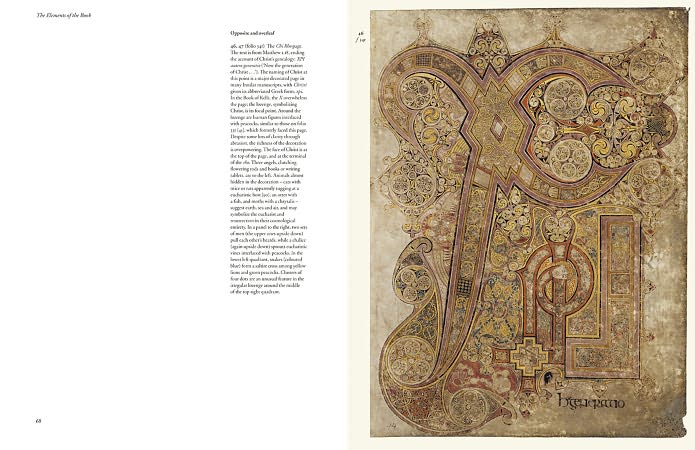 The Elements of the Book
Opposite and overleaf
46, 47 (folio 34r) The Chi Rho page.
The text is from Matthew 1.18, ending
the account of Christ's genealogy: XPI
autem generatio ('Now the generation
of Christ . . .'). The naming of Christ at
this point is a major decorated page in
many Insular manuscripts, with Christi
given in abbreviated Greek form, xpi.
In the Book of Kells, the X overwhelms
the page; the lozenge, symbolizing
Christ, is its focal point. Around the
lozenge are human figures interlaced
with peacocks, similar to those on folio
which formerly faced this page.
Despite some loss of clarity through
abrasion, the richness of the decoration
is overpowering. The face of Christ is at
the top of the page, and at the terminal
of the rho. Three angels, clutching
flowering rods and books or writing
tablets, are to the left. Animals almost
hidden in the decoration – cats with
mice or rats apparently tugging at a
eucharistic host, an otter with
a fish, and moths with a chrysalis –
suggest earth, sea and air, and may
symbolize the eucharist and
resurrection in their cosmological
entirety. In a panel to the right, two sets
of men (the upper ones upside down)
pull each other's beards, while a chalice
(again upside down) sprouts eucharistic
vines interlaced with peacocks. In the
lower left quadrant, snakes (coloured
blue) form a saltire cross among yellow
lions and green peacocks. Clusters of
four dots are an unusual feature in the
irregular lozenge around the middle
of the top right quadrant.
68
46
f 34r
h generatio